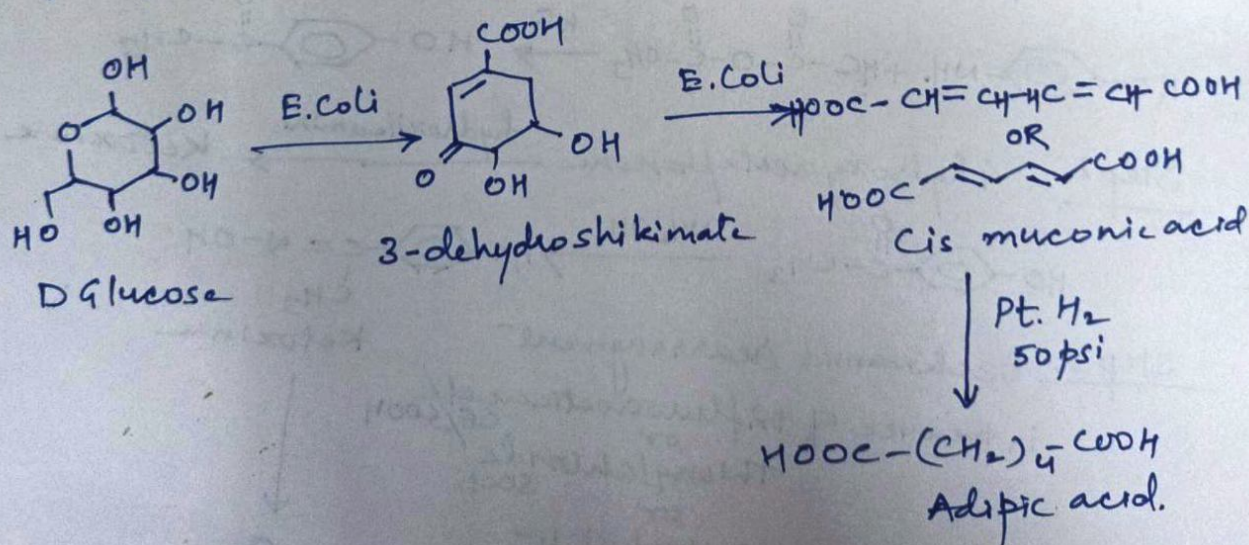 COOH
OH
OH
O
OH
HO
OH
D Glucose
E.Coli
O
OH
OH
3-dehydroshikimate
E.Coli
HOOC-CH=CH-HC=CH-COOH
OR
HOOC COOH
Cis muconic acid
Pt. H₂
50 psi
HOOC-(CH₂)₄-COOH
Adipic acid.